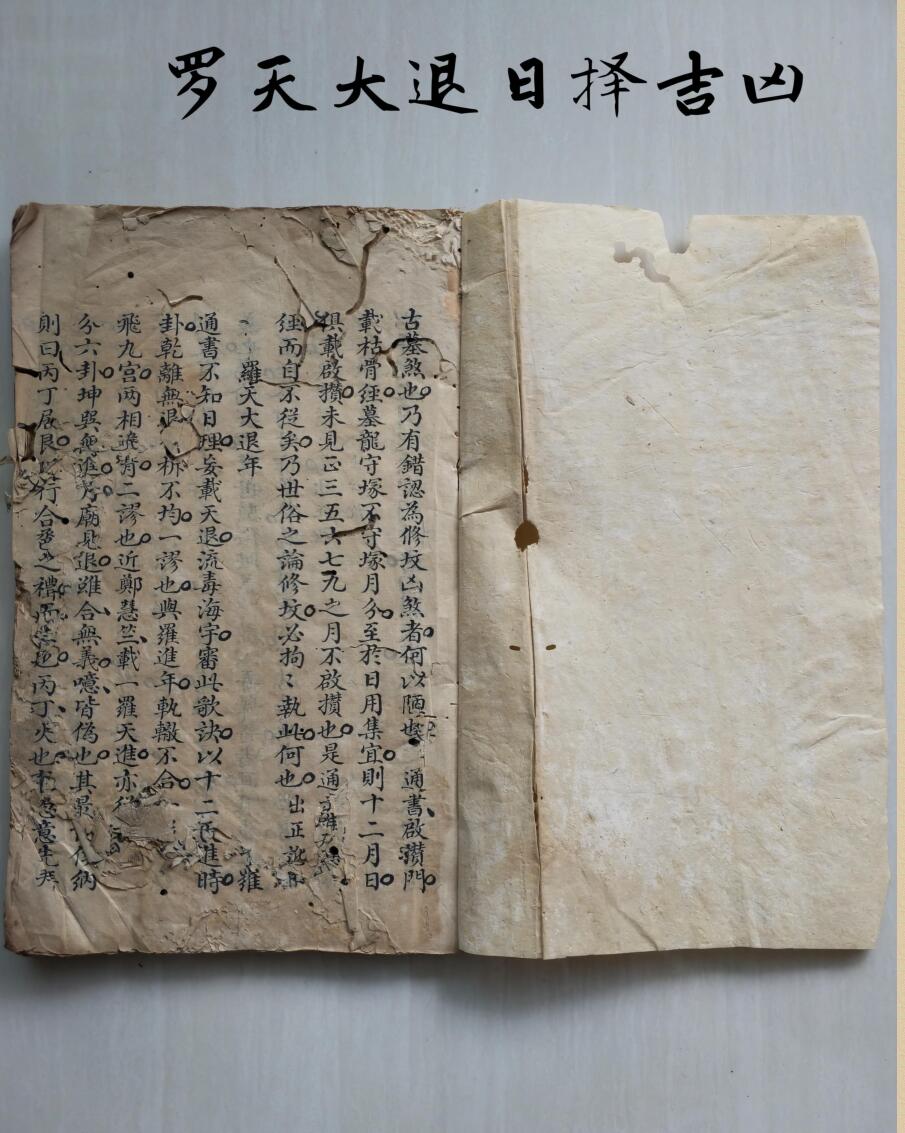 罗天大退日择吉凶
古墓煞也乃有錯認為修坟凶煞者何以陋也 通書啟攢門
載枯骨經墓龍守塚不守塚月分至於日用集宜則十二月日
俱載啟攢未見正三五六七九之月不啟攢也是通
經而自不從矣乃世俗之論修坟必拘〻執此何也 出正
羅天大退年 羅
通書不知日理妄載天退流毒海宇審此歌訣以十二再進時
卦乾離無退 析不均一謬也與羅進年軌轍不合一
飛九宮两相違背二謬也近鄭慧 載一羅天進亦
分六卦坤與無進 廟見退雖合無義噫皆偽也其最 納
則曰丙丁居艮 行合 之禮 丙丁火也 意